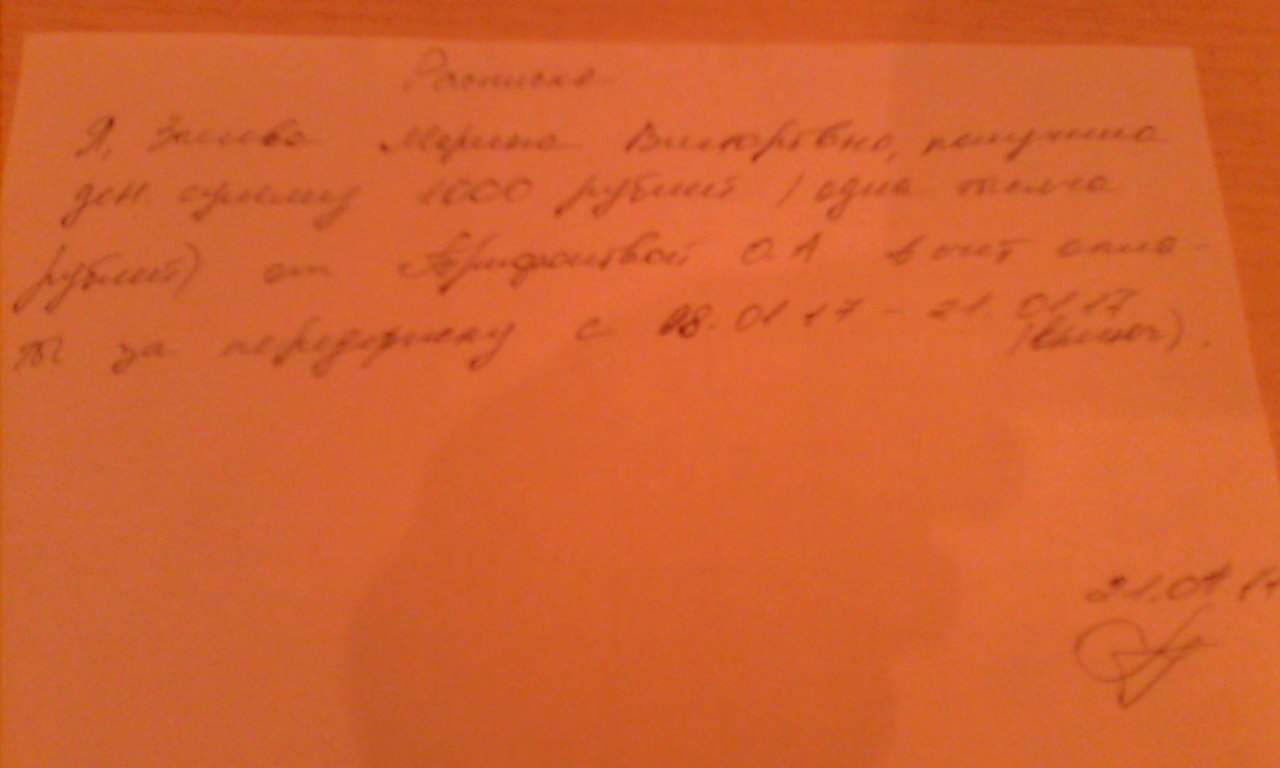 Расписка
Я, Марина Викторовна, получила
ден сумму 1000 рублей (одна тысяча
рублей) от О.А в счет опла-
ты за передержку с 18.01.17 - 21.01.17
(включ).
21.01.17